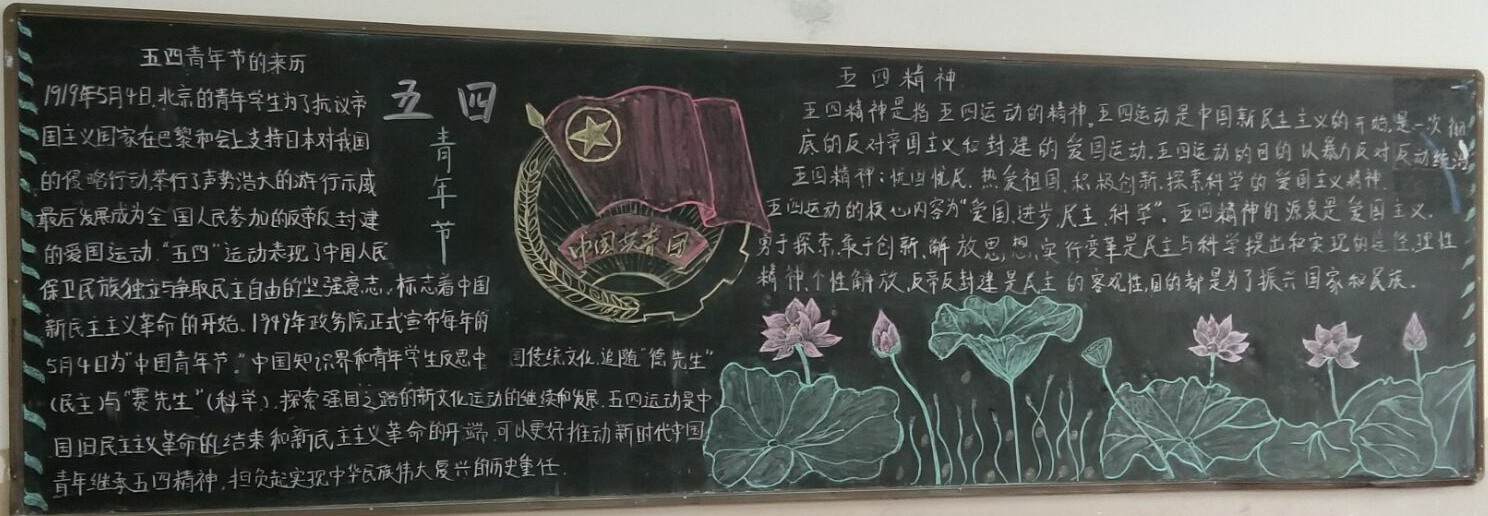 五四青年节的来历
1919年5月4日,北京的青年学生为了抗议帝
国主义国家在巴黎和会上支持日本对我国
的侵略行动,举行了声势浩大的游行示威
最后发展成为全国人民参加的反帝反封建
的爱国运动."五四"运动表现了中国人民
保卫民族独立与争取民主自由的坚强意志,标志着中国
新民主主义革命的开始。1949年政务院正式宣布每年的
5月4日为"中国青年节."中国知识界和青年学生反思中国传统文化,追随"德先生"
(民主)与"赛先生"(科学),探索强国之路的新文化运动的继续和发展.五四运动是中
国旧民主主义革命的结束和新民主主义革命的开端,可以更好推动新时代中国
青年继承五四精神,担负起实现中华民族伟大复兴的历史重任.
五四
青年节
中国共青团
五四精神
五四精神是指五四运动的精神,五四运动是中国新民主主义的开始,是一次彻
底的反对帝国主义和封建的爱国运动.五四运动的目的以暴力反对反动统治
五四精神:忧国忧民,热爱祖国,积极创新,探索科学的爱国主义精神.
五四运动的核心内容为"爱国,进步,民主,科学".五四精神的源泉是爱国主义.
勇于探索,敢于创新,解放思想,实行变革是民主与科学提出和实现的途径,理性
精神,个性解放,反帝反封建是民主的客观性,目的都是为了振兴国家和民族.